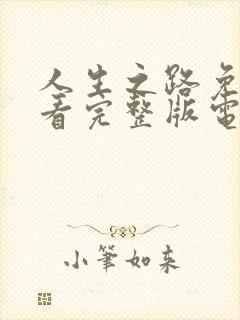 人生之路免
着完整版電
小筆如来